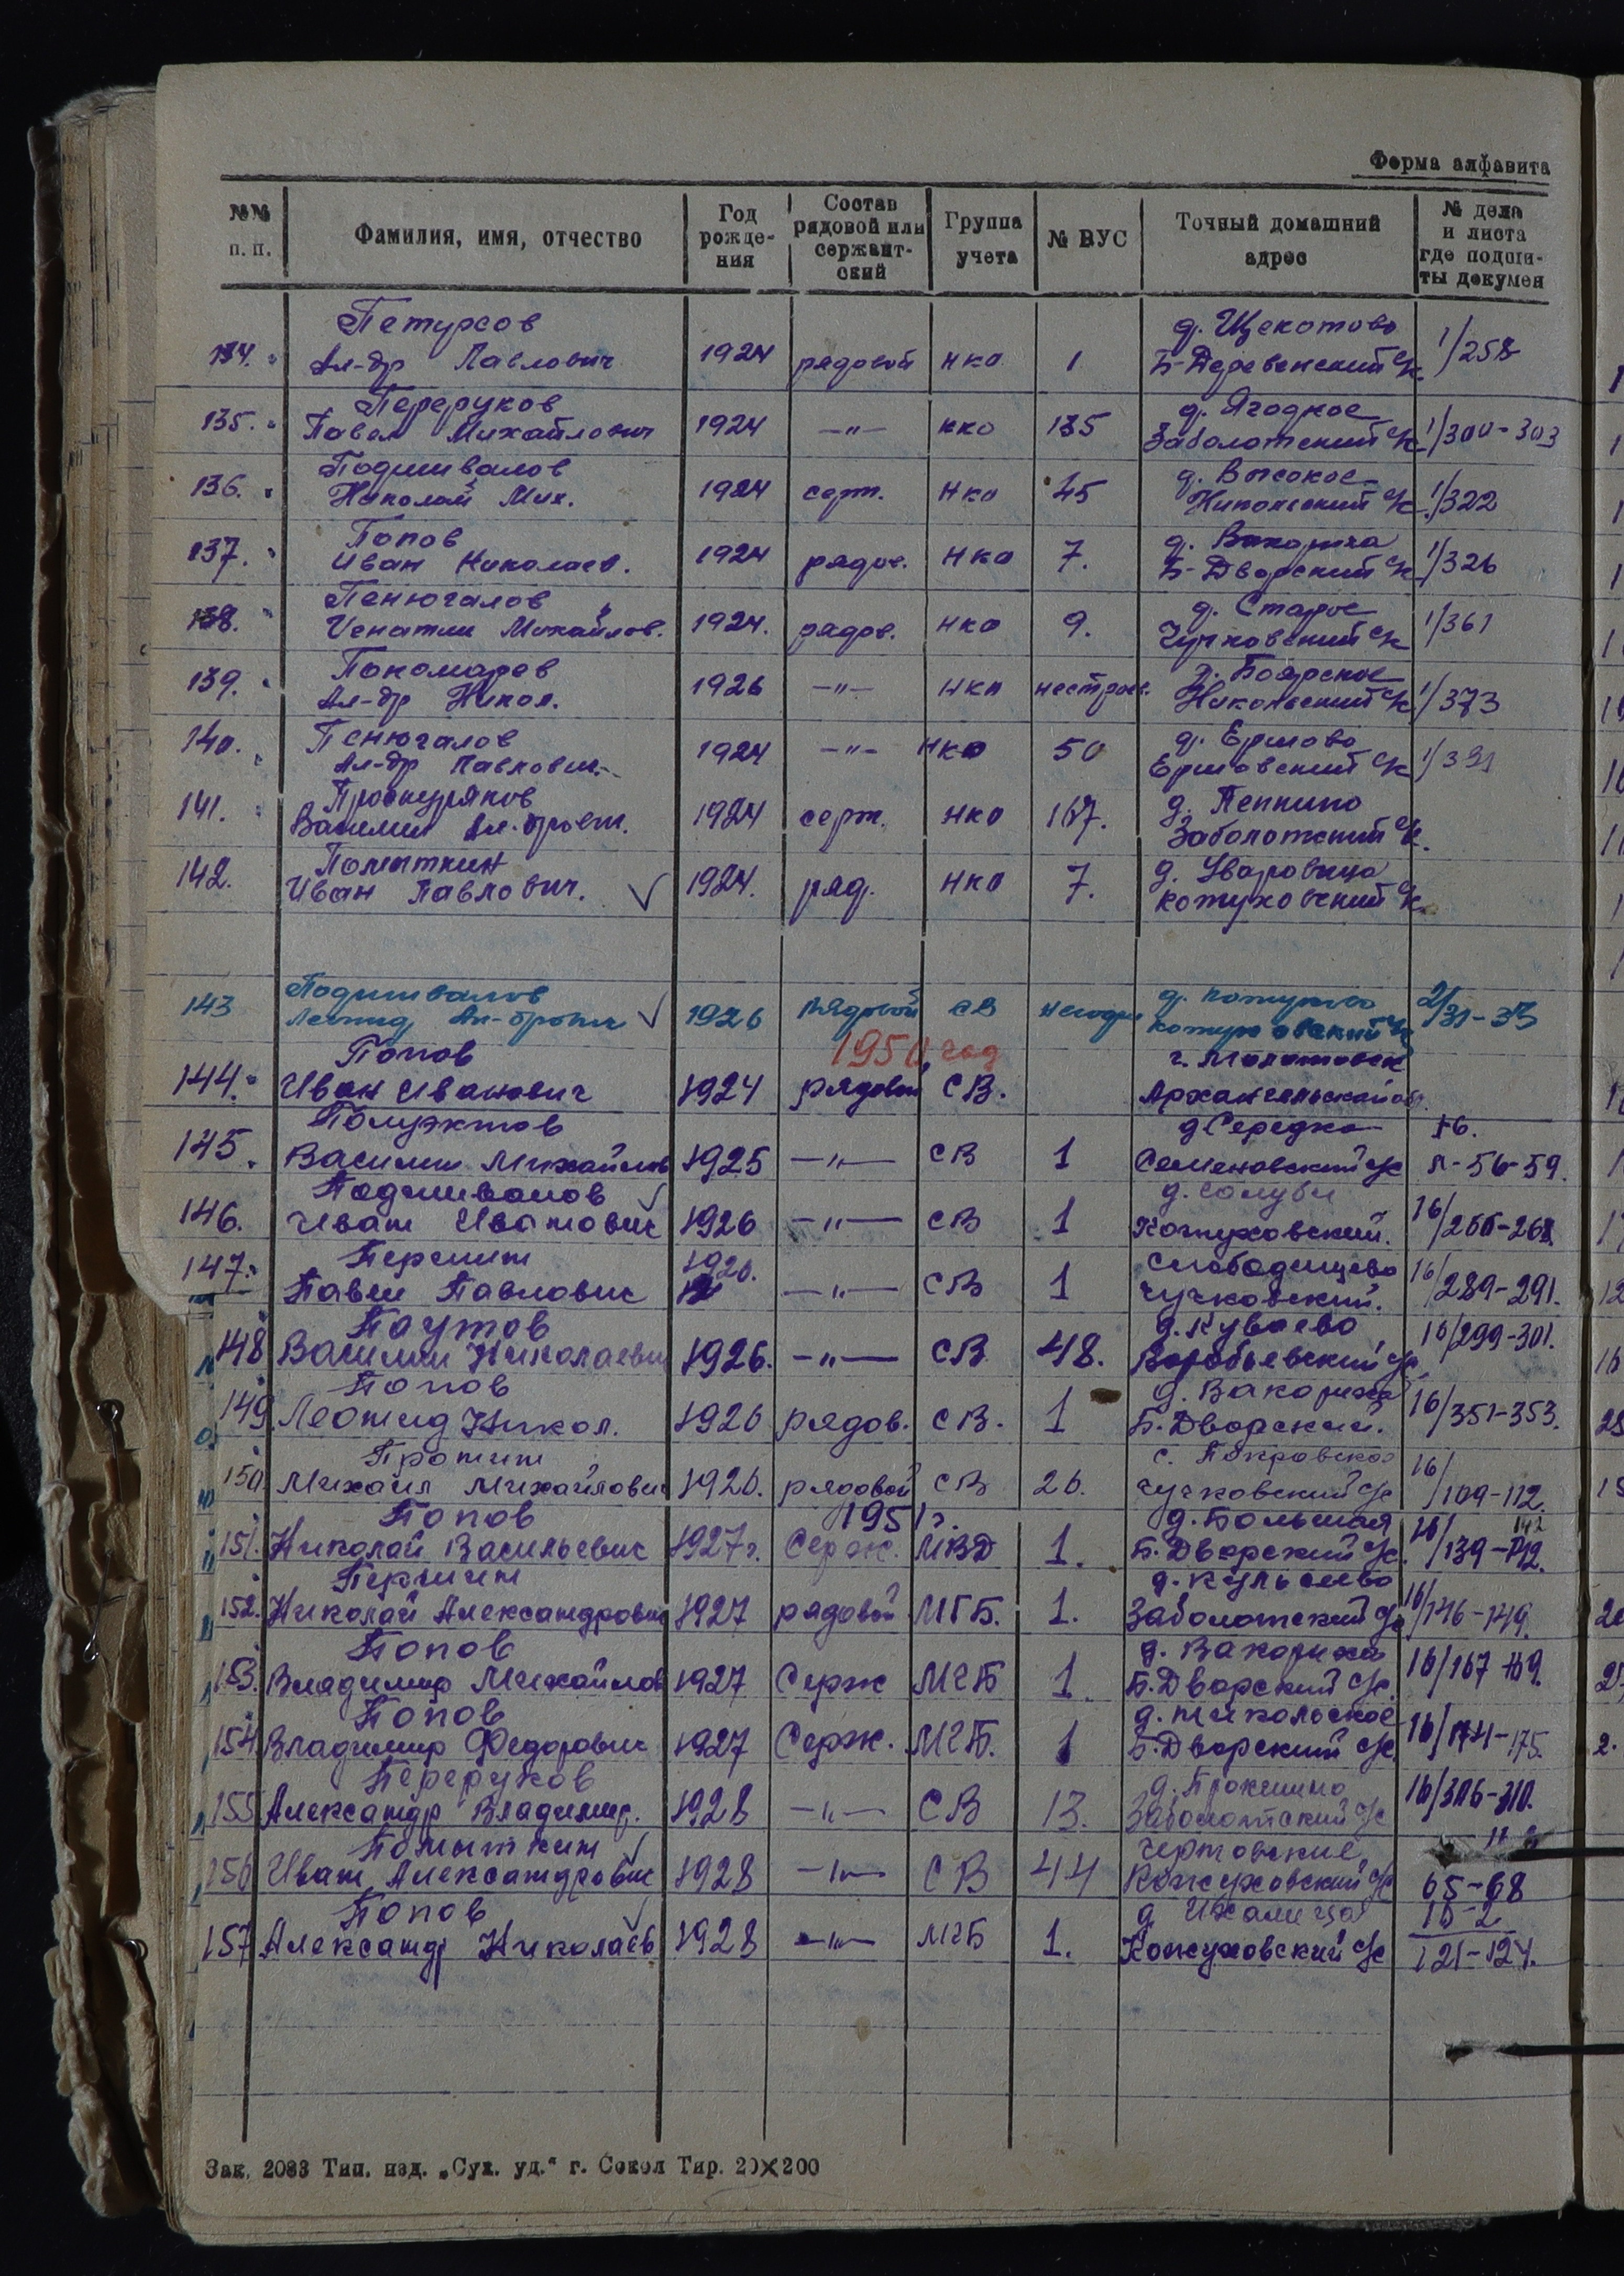 Форма алфавита
№№ п. п. Фамилия, имя, отчество Год рожде- ния Состав рядовой или сержант- ский Группа учета № ВУС Точный домашний адрес № дела и листа где подши- ты докумен
Петурсов д. Щекотово
134. Ал-др Павлович 1924 рядовой НКО 1 Б-Деревенский с/с. 1/258
Переруков д. Ягодное
135. Павел Михайлович 1924 —"— НКО 135 Заболотский с/с 1/300-303
Подшивалов д. Высокое
136. Николай Мих. 1924 серж. НКО 45 Никольский с/с 1/322
Попов д. Вакориха
137. Иван Николаев. 1924 рядов. НКО 7. Б-Дворский с/с 1/326
Пенюгалов д. Старое
138. Игнатий Михайлов. 1924. рядов. НКО 9. Чучковский с/с 1/361
Пономарев д. Боярское
139. Ал-др Никол. 1926 —"— НКО нестроев. Никольский с/с 1/373
Пенюгалов д. Ершово
140. Ал-др Павлович. 1924 —"— НКО 50 Ершовский с/с
Проскуряков д. Пепкино
141. Василий Ал-дрович. 1924 серж. НКО 167. Заболотский с/с.
Помыткин д. Уваровица
142. Иван Павлович. 1924. ряд. НКО 7. Кожуховский с/с
Подшивалов д. Кожухово
143 Леонид Ал-дрович 1926 рядовой СВ негодн Кожуховский с/с 2/31-33
1950 год
Попов г. Молотовск
144. Иван Иванович 1924 рядовой СВ. Архангельской об.
Полуэктов д. Середка 16.
145. Василий Михайлов 1925 —"— СВ 1 Семеновский с/с л-56-59.
Подшивалов д. Голуби
146. Иван Иванович 1926 —"— СВ 1 Кожуховский. 16/
Першин 1926. Слободищево
147. Павел Павлович —"— СВ 1 Чучковский. 16/289-291.
Паутов д. Куваево
148 Василий Николаевич 1926. —"— СВ 48. Воробьевский с/с 16/299-301.
Попов д. Вакориха
149. Леонид Никол. 1926 рядов. СВ. 1 Б. Дворский. 16/351-353.
Пронин с. Покровское
150. Михаил Михайлович 1926. рядовой СВ 26. Чучковский с/с 16/109-112.
1951 г.
Попов д. Большая
151. Николай Васильевич 1927г. Серж. МВД 1. Б. Дворский с/с. 16/139-142.
Першин д. Кульсеево
152. Николай Александрович 1927 рядовой МГБ. 1. Заболотский с/с 16/146-149.
Попов д. Вакориха
153. Владимир Михайлов 1927 Серж МГБ 1. Б. Дворский с/с. 16/167-169.
Попов д. Никольское
154. Владимир Федорович 1927 Серж. МГБ. 1 Б. Дворский с/с 16/174-175.
Переруков
155 Александр Владимир. 1928 —"— СВ 13. Заболотский с/с 16/306-310.
Помыткин Чертовские
156 Иван Александрович 1928 —"— СВ 44 Кожуховский с/с 65-68
Попов д. Ихалица 16-2
157 Александр Николаев 1928 —"— МГБ 1. Кожуховский с/с 121-124.
Зак. 2083 Тип. изд. „Сух. уд." г. Сокол Тир. 20×200